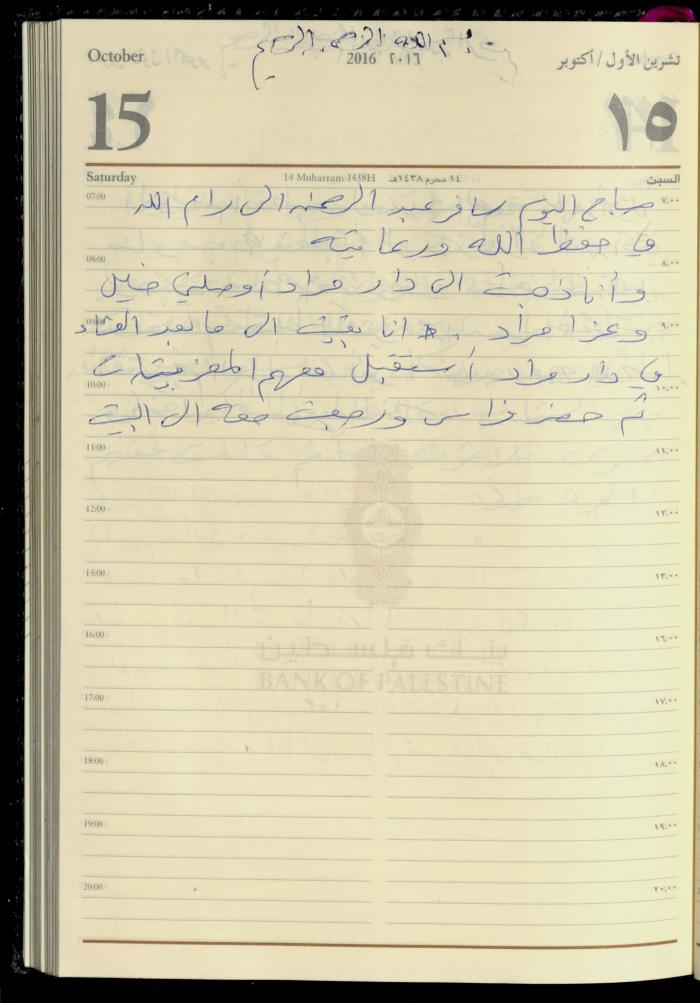 بسم الله الرحمن الرحيم
October
2016 ٢٠١٦
تشرين الأول / أكتوبر
15
١٥
Saturday
14 Muharram 1438H ١٤ محرم ١٤٣٨هـ
السبت
07:00 ٧,٠٠
صباح اليوم سافر عبد الرحمن الى رام الله
في حفظ الله ورعايته
08:00 ٨,٠٠
وأنا ذهبت الى دار مراد أوصلني خليل
09:00 ٩,٠٠
وعز مراد انا بقيت الى ما بعد العشاء
في دار مراد أستقبل معهم المعزيين
10:00 ١٠,٠٠
ثم حضر فراس ورجعت معه الى البيت
11:00 ١١,٠٠
12:00 ١٢,٠٠
13:00 ١٣,٠٠
16:00 ١٦,٠٠
بنك فلسطين
BANK OF PALESTINE
17:00 ١٧,٠٠
18:00 ١٨,٠٠
19:00 ١٩,٠٠
20:00 ٢٠,٠٠